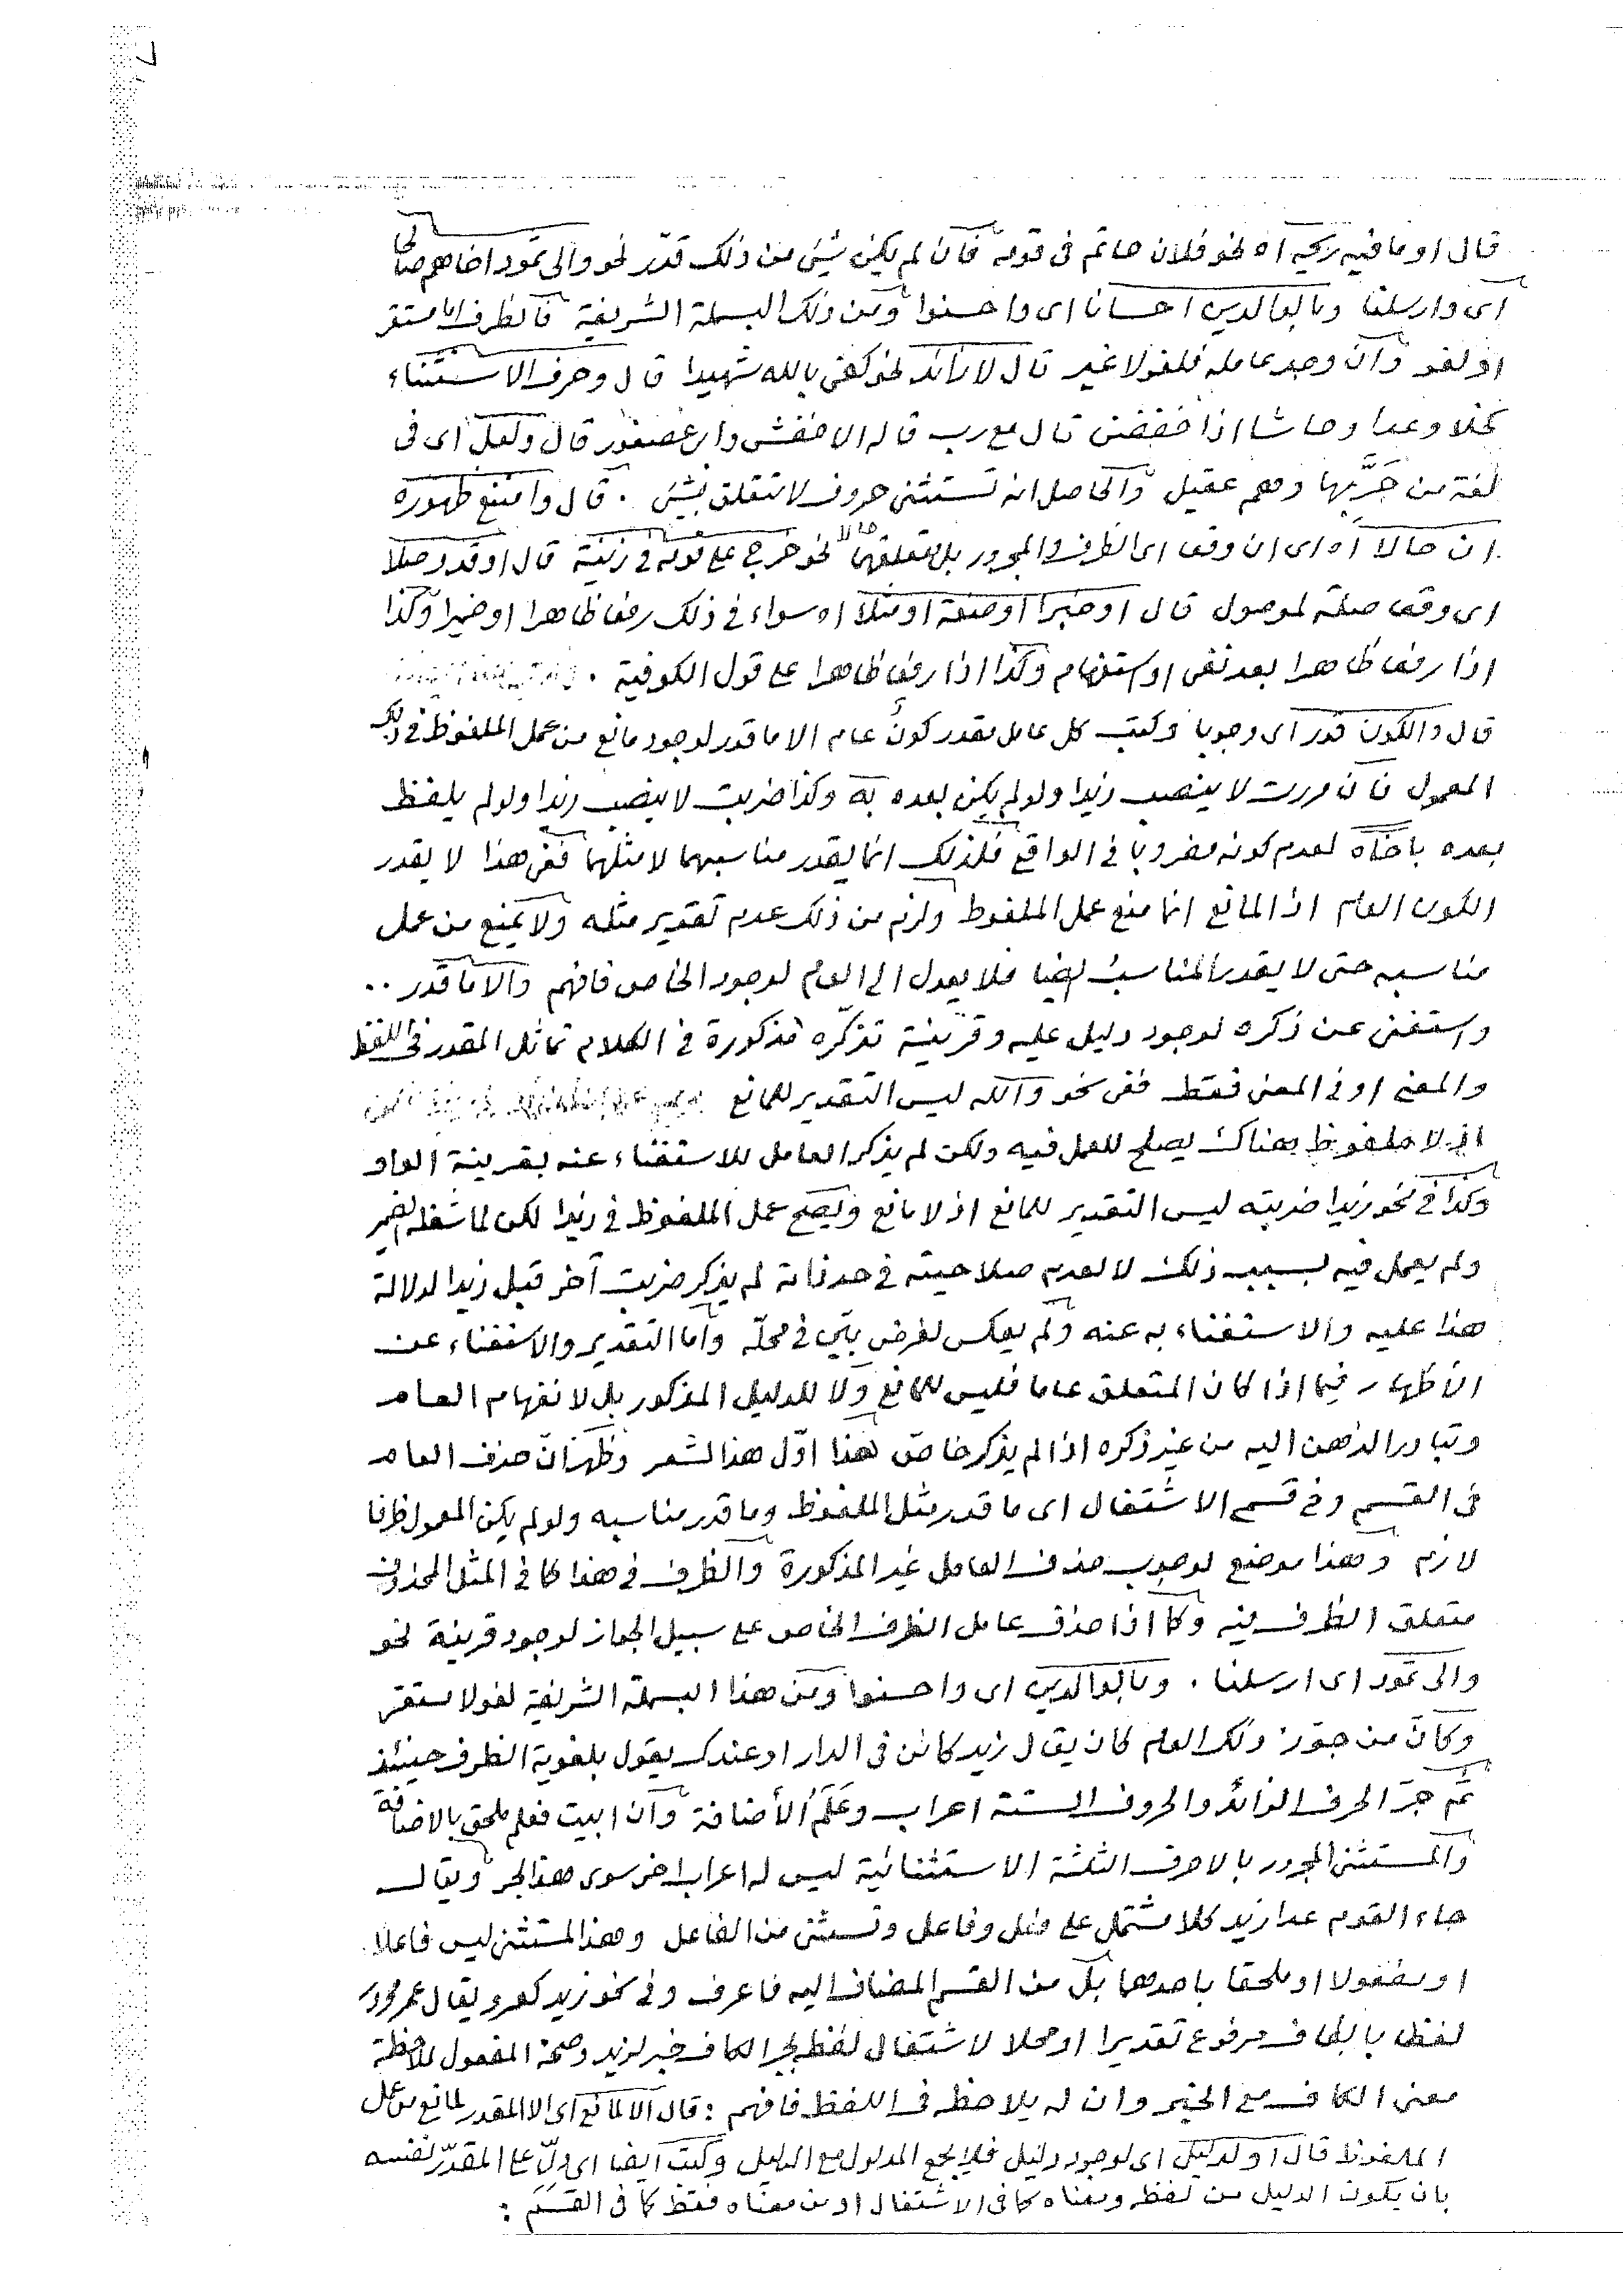 ٧
قال او ما فيه ريحه اه نحو فلان حاتم فى قومه فان لم يكن شئ من ذلك قدّر نحو والى ثمود اخاهم صالحا
اى وارسلنا وبالوالدين احسانا اى واحسنوا ومن ذلك البسملة الشريفة فالظرف اما مستقر
او لغو وان وجد عامله فلغو لا غير قال لا زائد نحو كفى بالله شهيدا قال وحرف الاستثناء
كخلا وعدا وحاشا اذا خفضن قال مع رب قاله الاخفش وابن عصفور قال ولعل اى فى
لغة من جَرَّ بها وهم عقيل والحاصل انه تستثنى حروف لا تتعلق بشئ . قال وامتنع ظهوره
ان حالا اه اى ان وقعا اى الظرف والمجرور بل متعلقهما حالا نحو خرج على قومه فى زينته قال او قد وصلا
اى وقعا صلة لموصول قال او خبرا او صفة او مثلا اه سواء فى ذلك رفعا ظاهرا او ضميرا وكذا
اذا رفعا ظاهرا بعد نفى او استفهام وكذا اذا رفعا ظاهرا على قول الكوفية .
قال والكون قدر اى وجوبا وكتب كل عامل مقدر كونٌ عام الا ما قدر لوجود مانع من عمل الملفوظ فى ذلك
المعمول فان مررت لا ينصب زيدا ولو لم يكن بعده به وكذا ضربت لا ينصب زيدا ولو لم يلفظ
بعده باخاه لعدم كونه مضروبا فى الواقع فلذلك انما يقدر مناسبهما لا مثلهما ففى هذا لا يقدر
الكون العام اذ المانع انما منع عمل الملفوظ ولزم من ذلك عدم تقدير مثله ولا يمنع من عمل
مناسبه حتى لا يقدر المناسب ايضا فلا يعدل الى العام لوجود الخاص فافهم والا ما قدر ..
واستغنى عن ذكره لوجود دليل عليه وقرينة تذكّره مذكورة فى الكلام تماثل المقدر فى اللفظ
والمعنى او فى المعنى فقط ففى نحو والله ليس التقدير للمانع
اذ لا ملفوظ هناك يصلح للعمل فيه ولكن لم يذكر العامل للاستغناء عنه بقرينة الواو
وكذا فى نحو زيدا ضربته ليس التقدير للمانع اذ لا مانع ويصح عمل الملفوظ فى زيدا لكن لما شغله الضمير
ولم يعمل فيه بسبب ذلك لا لعدم صلاحيته فى حد ذاته لم يذكر ضربت آخر قبل زيدا لدلالة
هذا عليه والاستغناء به عنه ولم يعكس لغرض بيّن فى محلّه واما التقدير والاستغناء عن
الاظهار فيما اذا كان المتعلق عاما فليس للمانع ولا للدليل المذكور بل لانفهام العام
وتبادر الذهن اليه من غير ذكره اذا لم يذكر خاصّ هذا اوّل هذا الشعر وظهر انّ حذف العام
فى القسم وفى قسم الاشتغال اى ما قدر مثل الملفوظ وما قدر مناسبه ولو لم يكن المعمول ظرفا
لازم وهذا موضع لوجوب حذف العامل غير المذكورة والظرف فى هذا كما فى المثل المحذوف
متعلق الظرف فيه وكما اذا حذف عامل الظرف الخاص على سبيل الجواز لوجود قرينة نحو
والى ثمود اى ارسلنا . وبالوالدين اى واحسنوا ومن هذا البسملة الشريفة لغو لا مستقر
وكانّ من جوّز ذلك العام كان يقال زيد كائن فى الدار او عندك يقول بلغوية الظرف حينئذ
ثم جرّ الحرف الزائد والحروف الستة اعراب وعَلَم الأضافة وان ابيت فعلم ملحق بالاضافة
والمستثنى المجرور بالاحرف الثلثة الاستثنائية ليس له اعراب اخر سوى هذا الجر ويقال
جاء القوم عدا زيد كلا مشتمل على فعل وفاعل وتستثنى من الفاعل وهذا المستثنى ليس فاعلا
او مفعولا او ملحقا باحدهما بل من القسم المضاف اليه فاعرف وفى نحو زيد كعمرو يقال عمرو مجرور
لفظا بالكاف مرفوع تقديرا او محلا لاشتغال لفظه بجر الكاف خبر لزيد وصحة المفعول لملاحظة
معنى الكاف مع الخبر وان لم يلاحظ فى اللفظ فافهم : قال الا لمانع اى الا المقدر لمانع من عمل
الملفوظ قال او لدليل اى لوجود دليل فلا يجمع المدلول مع الدليل وكتب ايضا اى دلّ على المقدّر نفسه
بان يكون الدليل من لفظه ومعناه كما فى الاشتغال او من معناه فقط كما فى القسم :